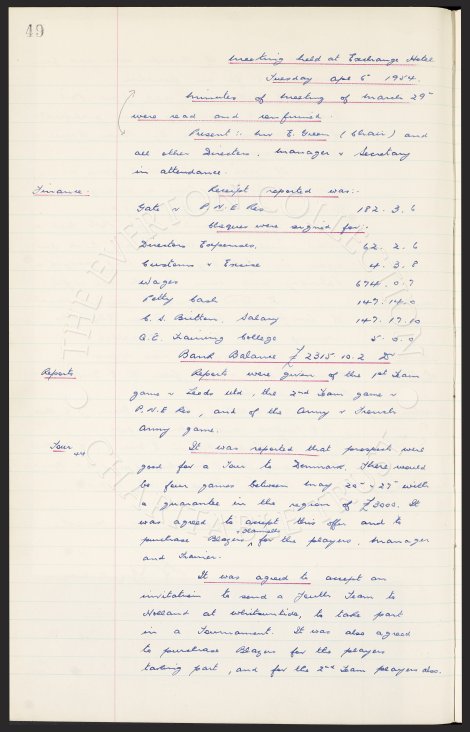 49
Meeting held at Exchange Hotel
Tuesday Apl 6 1954.
Minutes of Meeting of March 29th
were read and confirmed.
Present:- Mr E. Green (Chair) and
all other Directors. Manager & Secretary
in attendance.
Finance:
Receipt reported was:-
Gate v P.N.E Res 182. 3. 6
Cheques were signed for:-
Directors Expenses. 62. 2. 6
Customs & Excise 4. 3. 8
Wages 674. 0. 7
Petty Cash 147. 14. 0
C. S. Britton, Salary 147. 17. 10
Training College 5. 0. 0
Bank Balance £ 2315. 10. 2 Dr
Reports
Reports were given of the 1st Team
game v Leeds Utd, the 2nd Team game v
P.N.E Res, and of the Army v French
Army game.
Tour
It was reported that prospects were
good for a Tour to Denmark, there would
be four games between May 20th & 27th with
a guarantee in the region of £3000. It
was agreed to accept this offer and to
purchase Blazers & Flannels for the players, Manager
and Trainer.
It was agreed to accept an
invitation to send a Youth Team to
Holland at Whitsuntide, to take part
in a Tournament. It was also agreed
to purchase Blazers for the players
taking part, and for the 2nd Team players also.
THE EVERTON COLLECTION
CHARITABLE TRUST